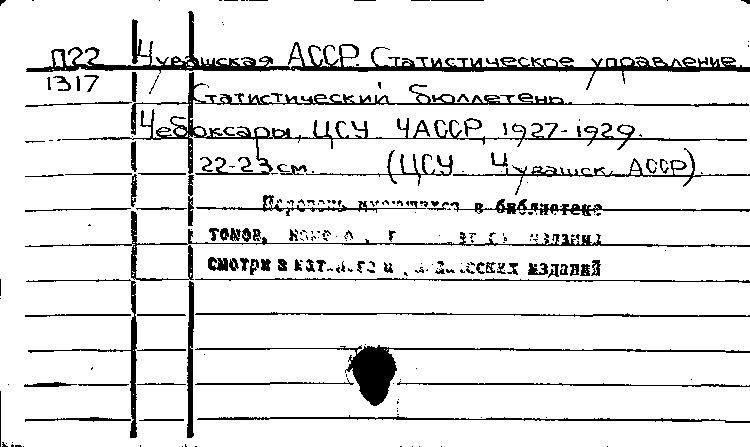 П22 Чувашская АССР. Статистическое управление.
1317 Статистический бюллетень.
Чебоксары, ЦСУ ЧАССР, 1927-1929.
22-23 см. (ЦСУ Чувашск. АССР).
Перечень имеющихся в библиотеке
томов, издания
смотри в изданий